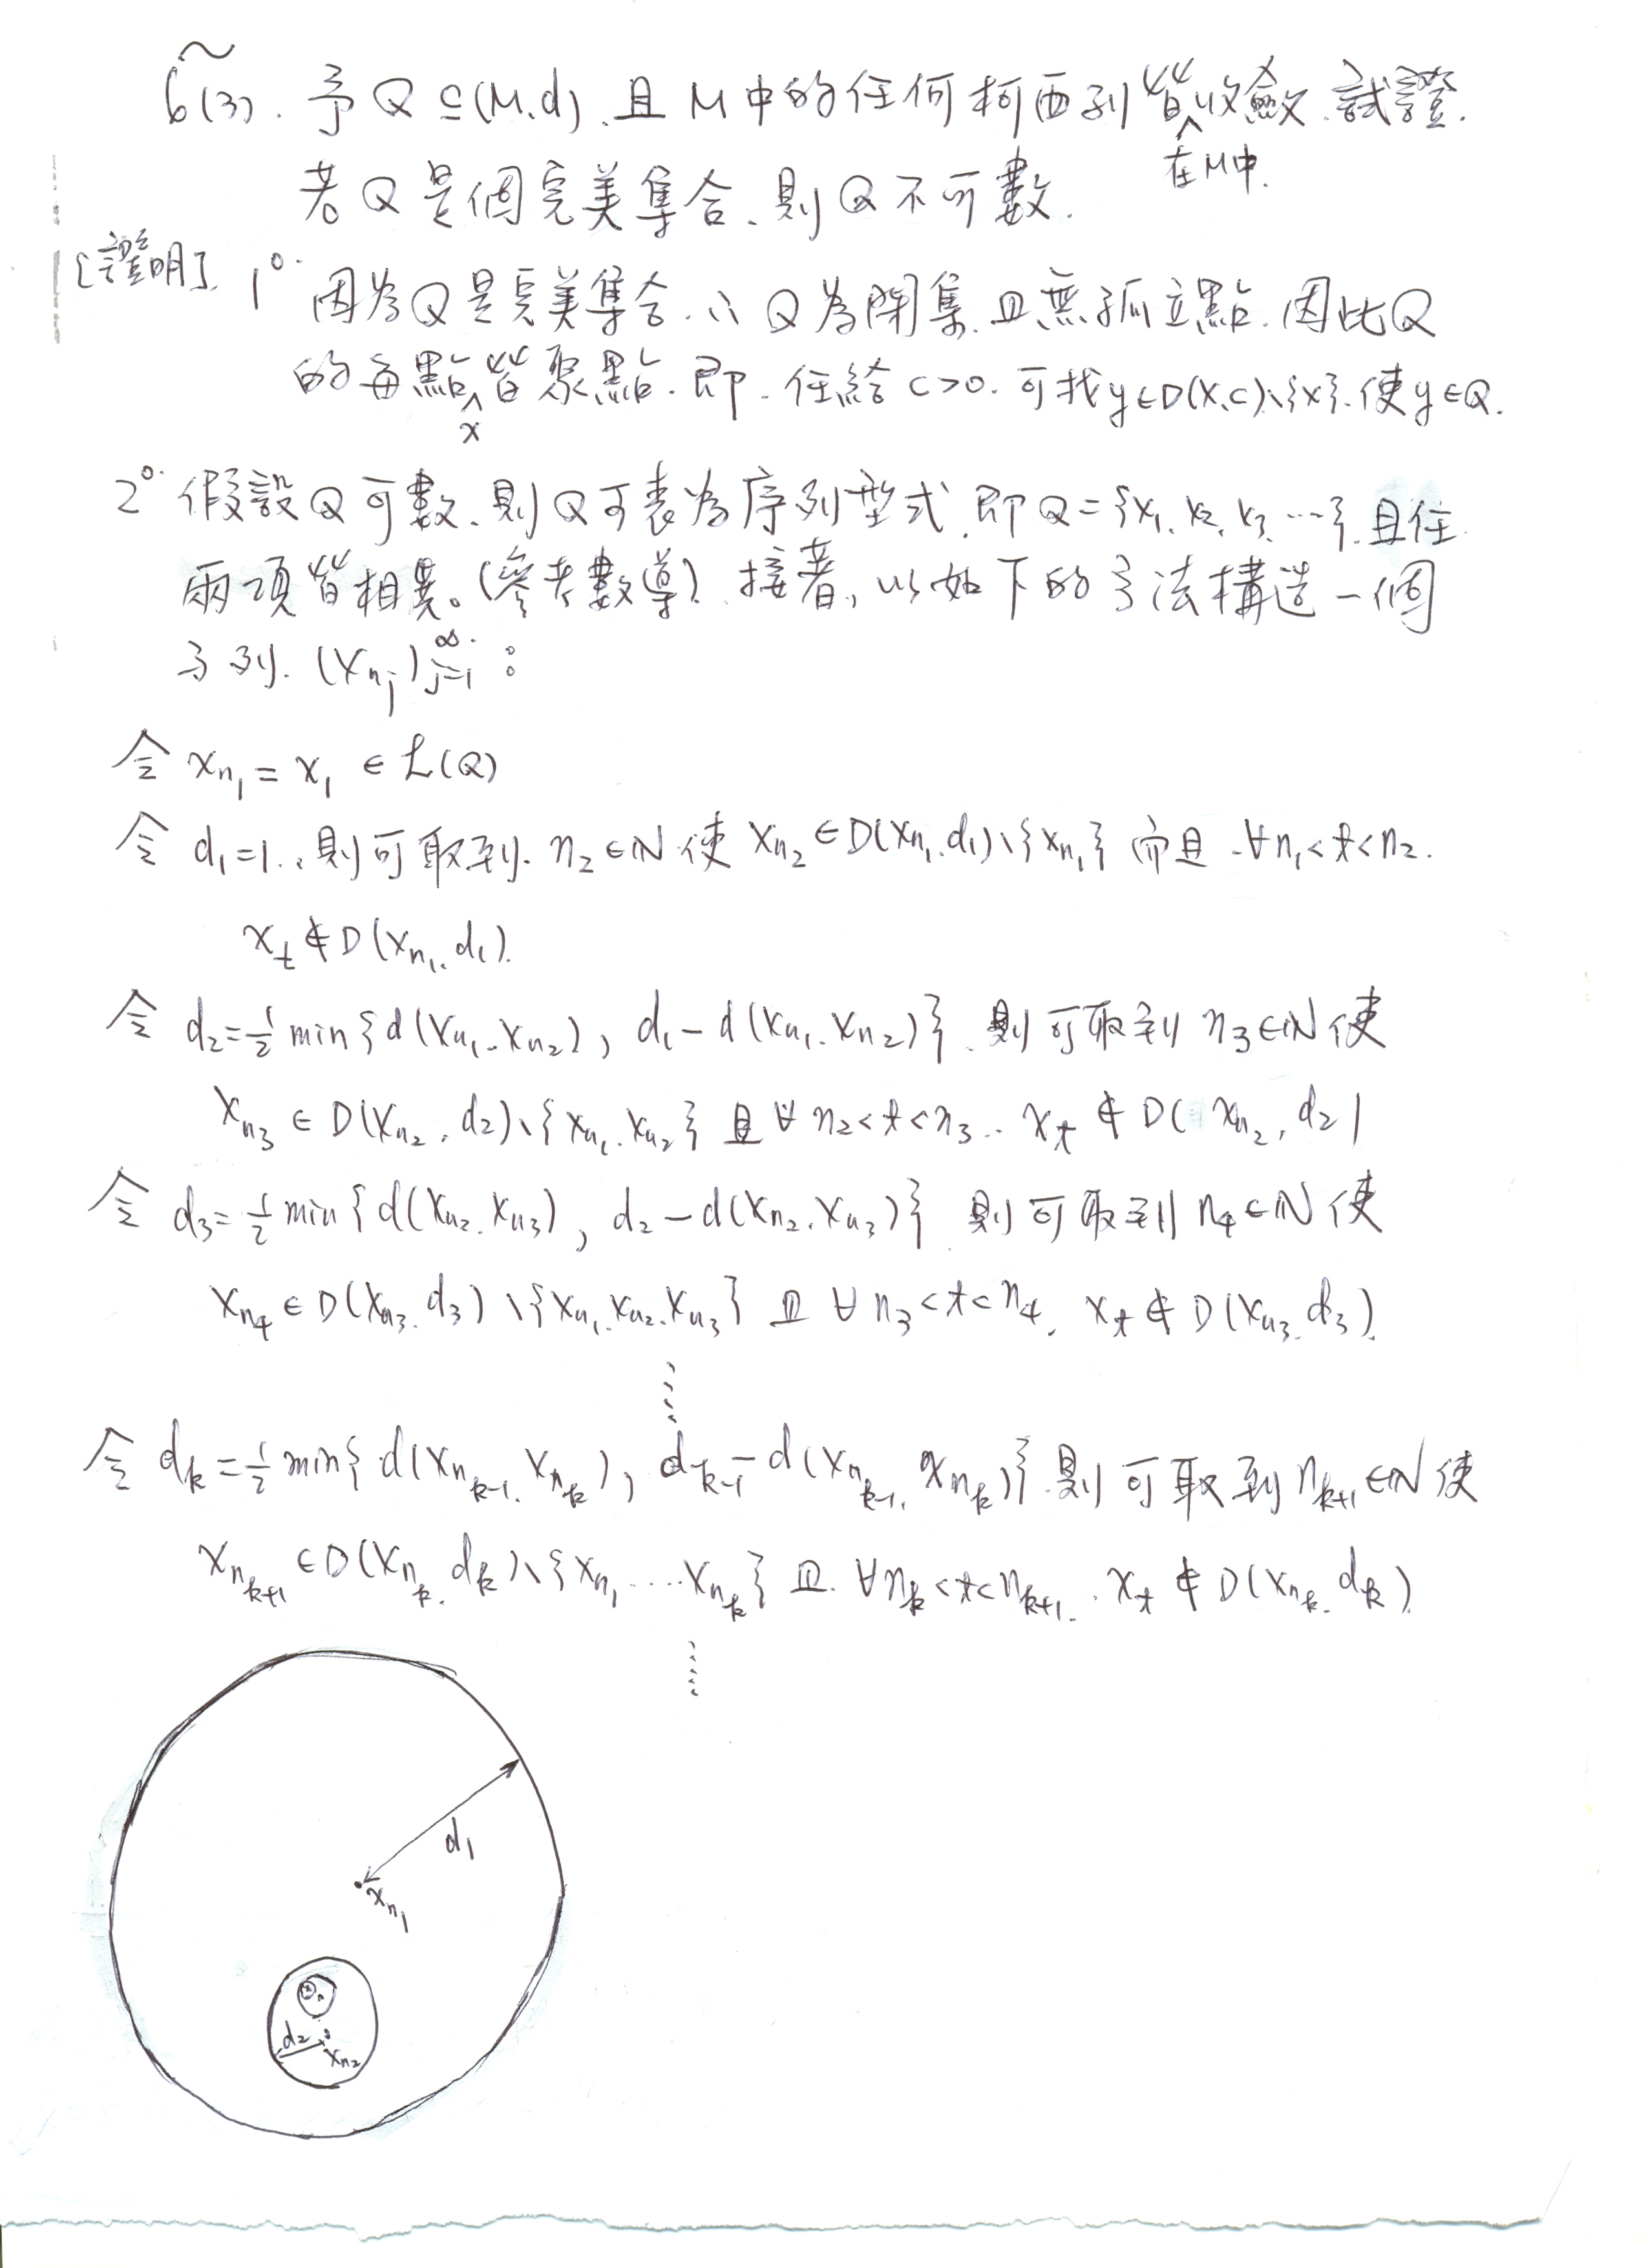 6(3). 予Q⊆(M,d),且M中的任何柯西列皆收斂.試證.
在M中.
若Q是個完美集合、則Q不可數.
[證明]. 1°. 因為Q是完美集合.∴Q為閉集.且無孤立點.因此Q
的每點皆聚點.即.任給c>0.可找y∈D(x,c)\{x}.使y∈Q.
x
2°. 假設Q可數、則Q可表為序列型式.即Q={x₁,x₂,x₃,…}.且任
兩項皆相異。(參考數導).接著,以如下的方法構造一個
子列.(x_{n_j})_{j=1}^∞:
令 x_{n₁}=x₁∈ℒ(Q)
令 d₁=1.,則可取到.n₂∈ℕ使 x_{n₂}∈D(x_{n₁},d₁)\{x_{n₁}} 而且.∀n₁<t<n₂.
x_t∉D(x_{n₁},d₁).
令 d₂=½min{d(x_{n₁},x_{n₂}), d₁-d(x_{n₁},x_{n₂})}.則可取到 n₃∈ℕ使
x_{n₃}∈D(x_{n₂},d₂)\{x_{n₁},x_{n₂}} 且∀n₂<t<n₃.. x_t∉D(x_{n₂},d₂)
令 d₃=½min{d(x_{n₂},x_{n₃}), d₂-d(x_{n₂},x_{n₃})}.則可取到 n₄∈ℕ使
x_{n₄}∈D(x_{n₃},d₃)\{x_{n₁},x_{n₂},x_{n₃}} 且∀n₃<t<n₄. x_t∉D(x_{n₃},d₃).
⋮
令 d_k=½min{d(x_{n_{k-1}},x_{n_k}), d_{k-1}-d(x_{n_{k-1}},x_{n_k})}.則可取到 n_{k+1}∈ℕ使
x_{n_{k+1}}∈D(x_{n_k},d_k)\{x_{n₁}…x_{n_k}} 且.∀n_k<t<n_{k+1}..x_t∉D(x_{n_k},d_k).
⋮
d₁
x_{n₁}
d₂
x_{n₂}